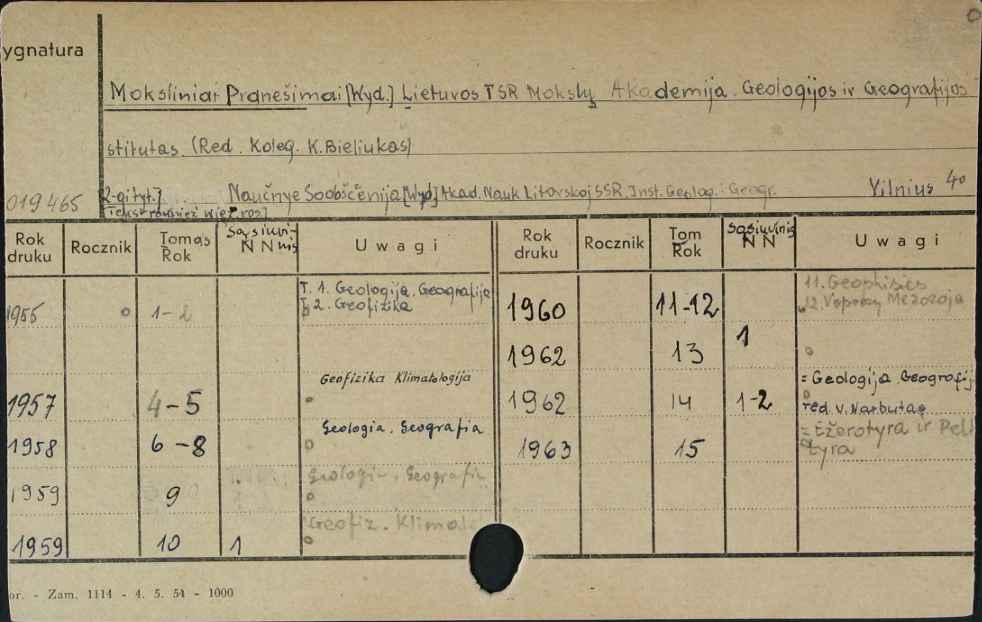 ygnatura
Moksliniai Pranešimai [Wyd.] Lietuvos TSR Mokslų Akademija. Geologijos ir Geografijos
stitutas. (Red. Koleg. K. Bieliukas)
019465 [2-gi tyt.] Naučnye Soobščenija [Wyd] Akad. Nauk Litovskoj SSR. Inst. Geolog. i Geogr. Vilnius 4°
Tekst również w jęz. ros.]
Rok druku Rocznik Tomas Rok Sąsiuvinis N N Uwagi Rok druku Rocznik Tom Rok Sąsiuvinis N N Uwagi
1955 1-2 T. 1. Geologija. Geografija
T. 2. Geofizika
1957 4-5 Geofizika Klimatologija
1958 6-8 Geologia. Geografia
1959 9 Geologia. Geografia
1959 10 1 Geofiz. Klimat
1960 11-12 11. Geophisics
12. Voprosy Mezozoja
1962 13 1
1962 14 1-2 = Geologija Geografij
red. V. Narbutas
1963 15 = Ežerotyra ir Pel
tyra
or. - Zam. 1114 - 4. 5. 54 - 1000